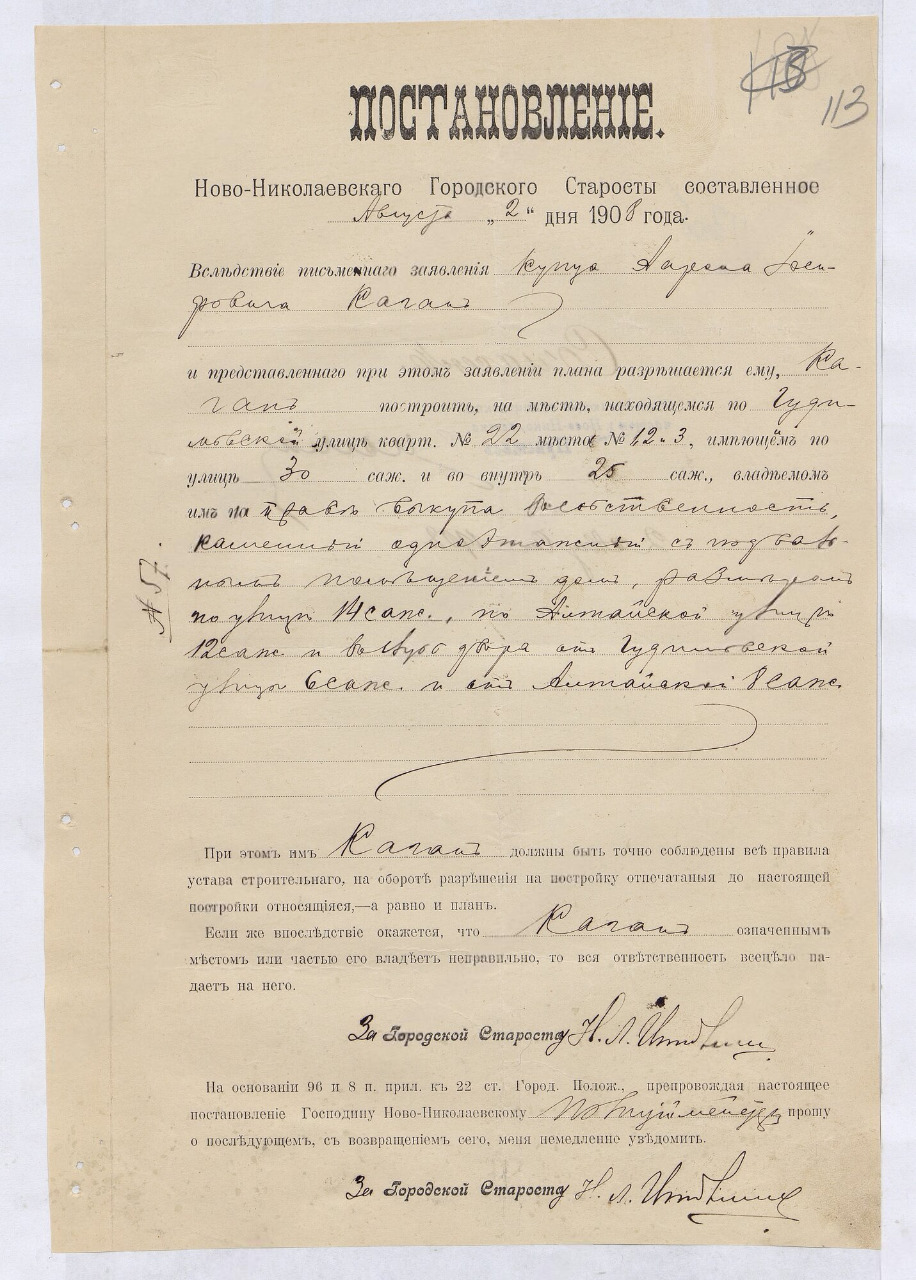 113
113
ПОСТАНОВЛЕНІЕ.
Ново-Николаевскаго Городского Старосты составленное
Августа „2“ дня 1908 года.
Вслѣдствіе письменнаго заявленія купца Аарона Іоси-
фовича Каганъ
и представленнаго при этомъ заявленіи плана разрѣшается ему, Ка-
ганъ построить, на мѣстѣ, находящемся по Гуди-
мовской улицѣ кварт. № 22 мѣста № 12-3, имѣющемъ по
улицѣ 30 саж. и во внутрь 25 саж., владѣемомъ
имъ на правѣ выкупа въ собственность,
каменный одноэтажный съ подваль-
нымъ помѣщеніемъ домъ, размѣромъ
по улицѣ 14 саж., по Алтайской улицѣ
12 саж. и внутрь двора отъ Гудимовской
улицы 6 саж. и отъ Алтайской 8 саж.
№ 57.
При этомъ имъ Каганъ должны быть точно соблюдены всѣ правила
устава строительнаго, на оборотѣ разрѣшенія на постройку отпечатаныя до настоящей
постройки относящіяся,—а равно и планъ.
Если же впослѣдствіе окажется, что Каганъ означеннымъ
мѣстомъ или частью его владѣетъ неправильно, то вся отвѣтственность всецѣло па-
даетъ на него.
За Городской Старосту Н. Л.
На основаніи 96 и 8 п. прил. къ 22 ст. Город. Полож., препровождая настоящее
постановленіе Господину Ново-Николаевскому Полицiймейстеру прошу
о послѣдующемъ, съ возвращеніемъ сего, меня немедленно увѣдомить.
За Городской Старосту Н. Л.